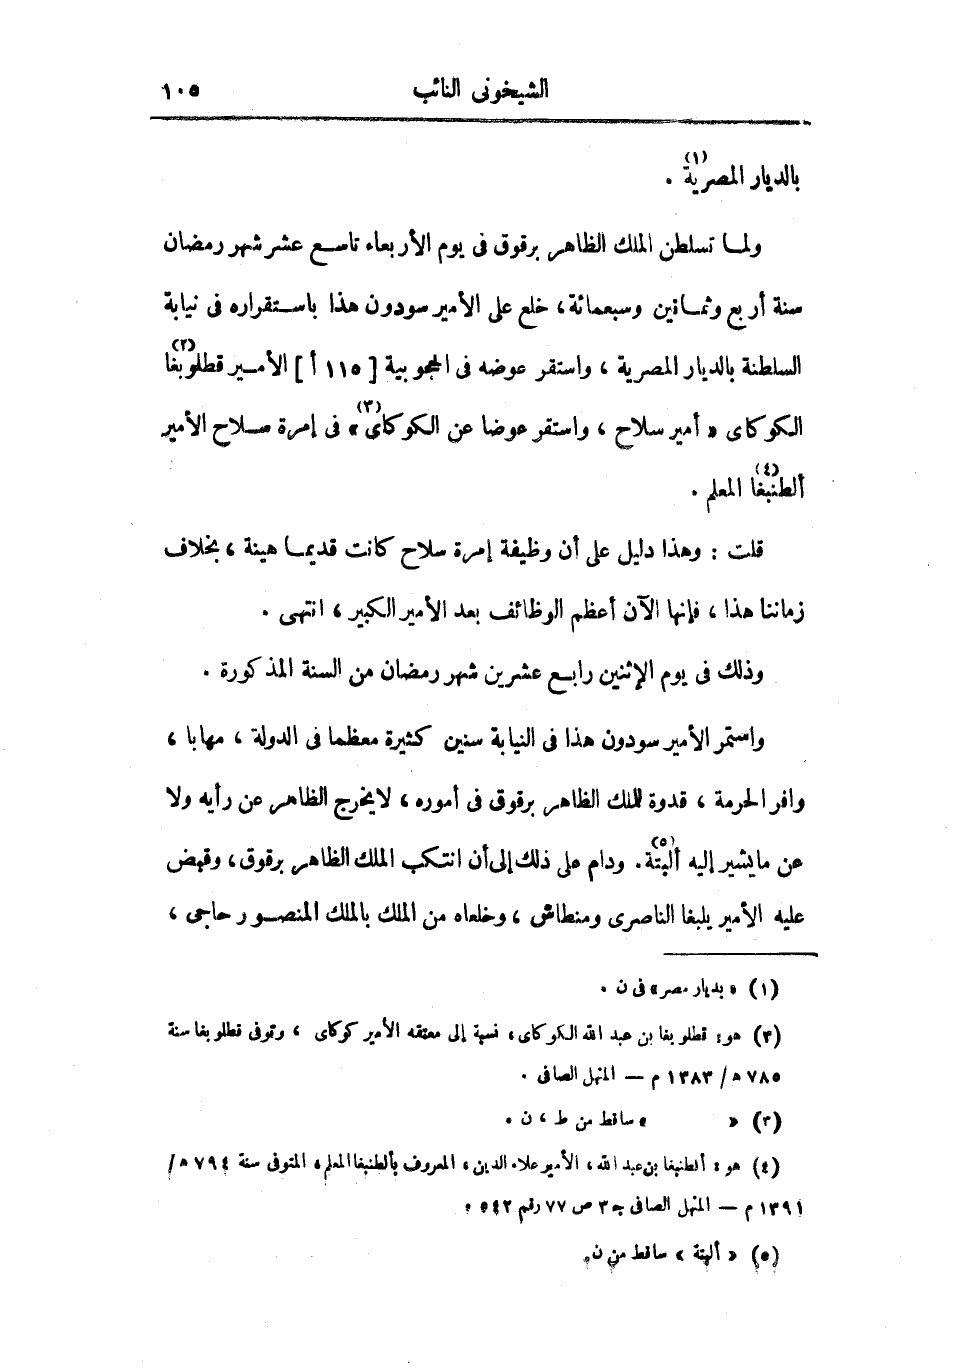 الشيخونى النائب ١٠٥
بالديار المصرية (١) .
ولما تسلطن الملك الظاهر برقوق فى يوم الأربعاء تاسع عشر شهر رمضان
سنة أربع وثمانين وسبعمائة، خلع على الأمير سودون هذا باستقراره فى نيابة
السلطنة بالديار المصرية ، واستقر عوضه فى الحجوبية [ ١١٥ أ ] الأمير قطلوبغا (٢)
الكوكاى « أمير سلاح ، واستقر عوضا عن الكوكاى» (٣) فى إمرة سلاح الأمير
ألطنبغا (٤) المعلم .
قلت : وهذا دليل على أن وظيفة إمرة سلاح كانت قديما هينة ، بخلاف
زماننا هذا ، فإنها الآن أعظم الوظائف بعد الأمير الكبير ، انتهى .
وذلك فى يوم الإثنين رابع عشرين شهر رمضان من السنة المذكورة .
واستمر الأمير سودون هذا فى النيابة سنين كثيرة معظما فى الدولة ، مهابا ،
وافر الحرمة ، قدوة للملك الظاهر برقوق فى أموره ، لايخرج الظاهر عن رأيه ولا
عن مايشير إليه ألبتة (٥) . ودام على ذلك إلى أن انتكب الملك الظاهر برقوق، وقبض
عليه الأمير يلبغا الناصرى ومنطاش ، وخلعاه من الملك بالملك المنصور حاجى ،
(١) « بديار مصر » فى ن .
(٢) هو: قطلوبغا بن عبد الله الكوكاى، نسبة إلى معتقه الأمير كوكاى ، وتوفى قطلوبغا سنة
٧٨٥ ه‍/ ١٣٨٣ م — المنهل الصافى .
(٣) « » ساقط من ط ، ن .
(٤) هو: ألطنبغا بن عبد الله، الأمير علاء الدين، المعروف بألطنبغا المعلم، المتوفى سنة ٧٩٤ ه‍/
١٣٩١ م — المنهل الصافى ج ٣ ص ٧٧ رقم ٥٤٢ .
(٥) « ألبتة » ساقط من ن .